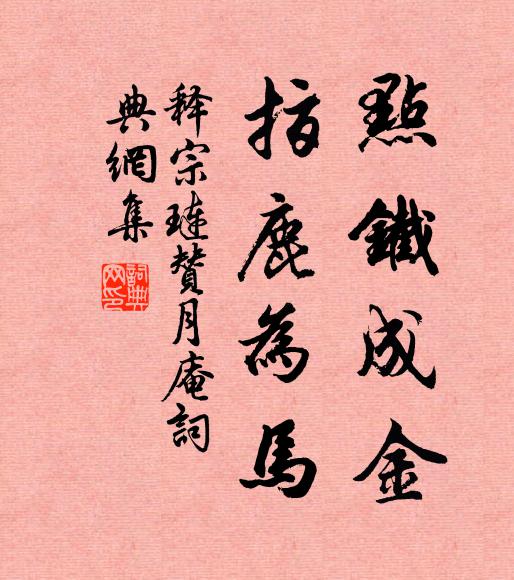 點鐵成金
指鹿為馬
释宗琏贊月庵詞
典網集
詞典网印